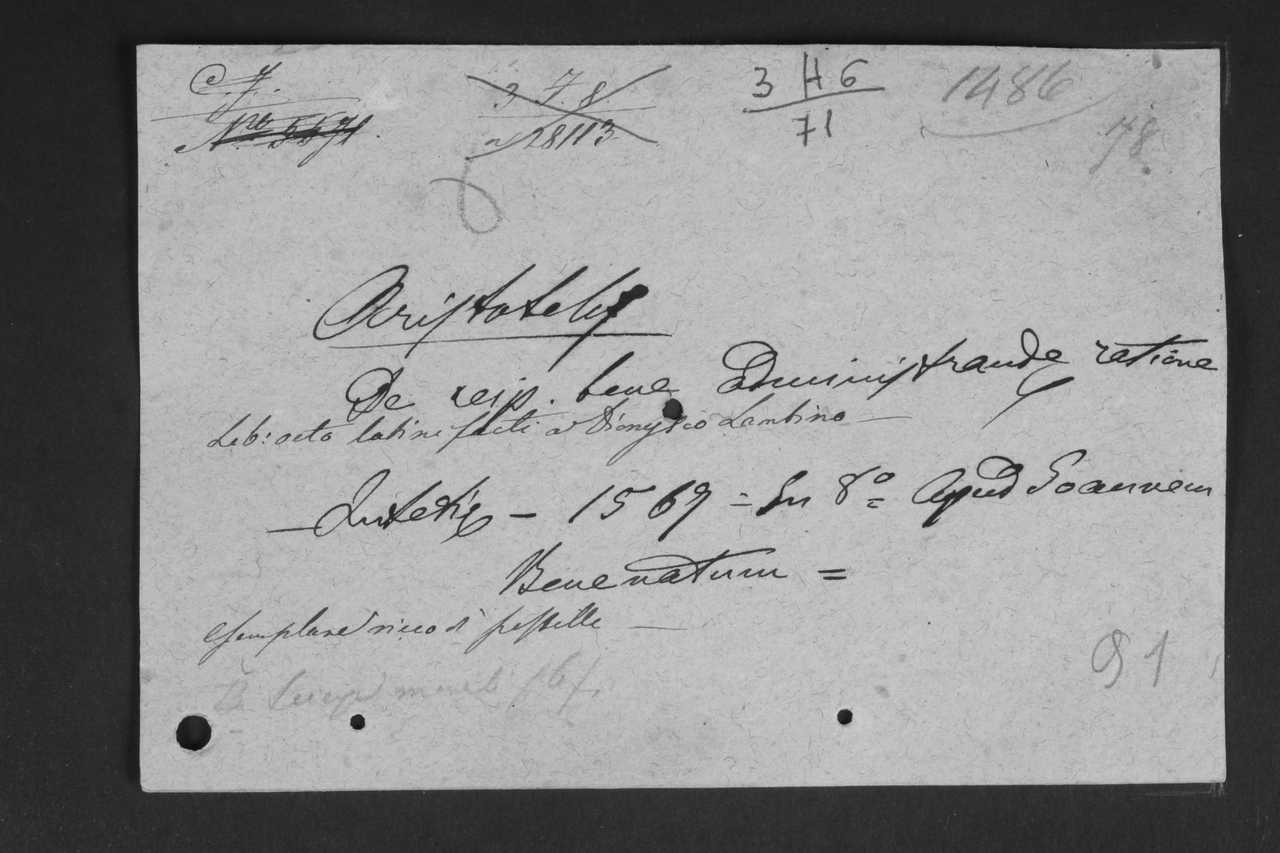 3 H 6
71
1486
78
3 7. 8.
28113
Aristotelis
De reip. bene Administrandę ratione
Lib: octo latini facti a Dionysio Lambino —
— Lutetię — 1569 = In 8º = Apud Joannem
Benenatum =
esemplare ricco di postille —
91